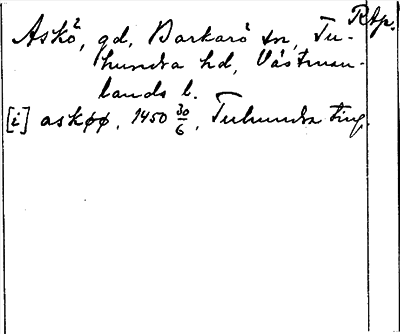 Rtp.
Askö, gd, Barkarö sn, Tu-
hundra hd, Västman-
lands l.
[i] askøø. 1450 30/6, Tuhundra ting.